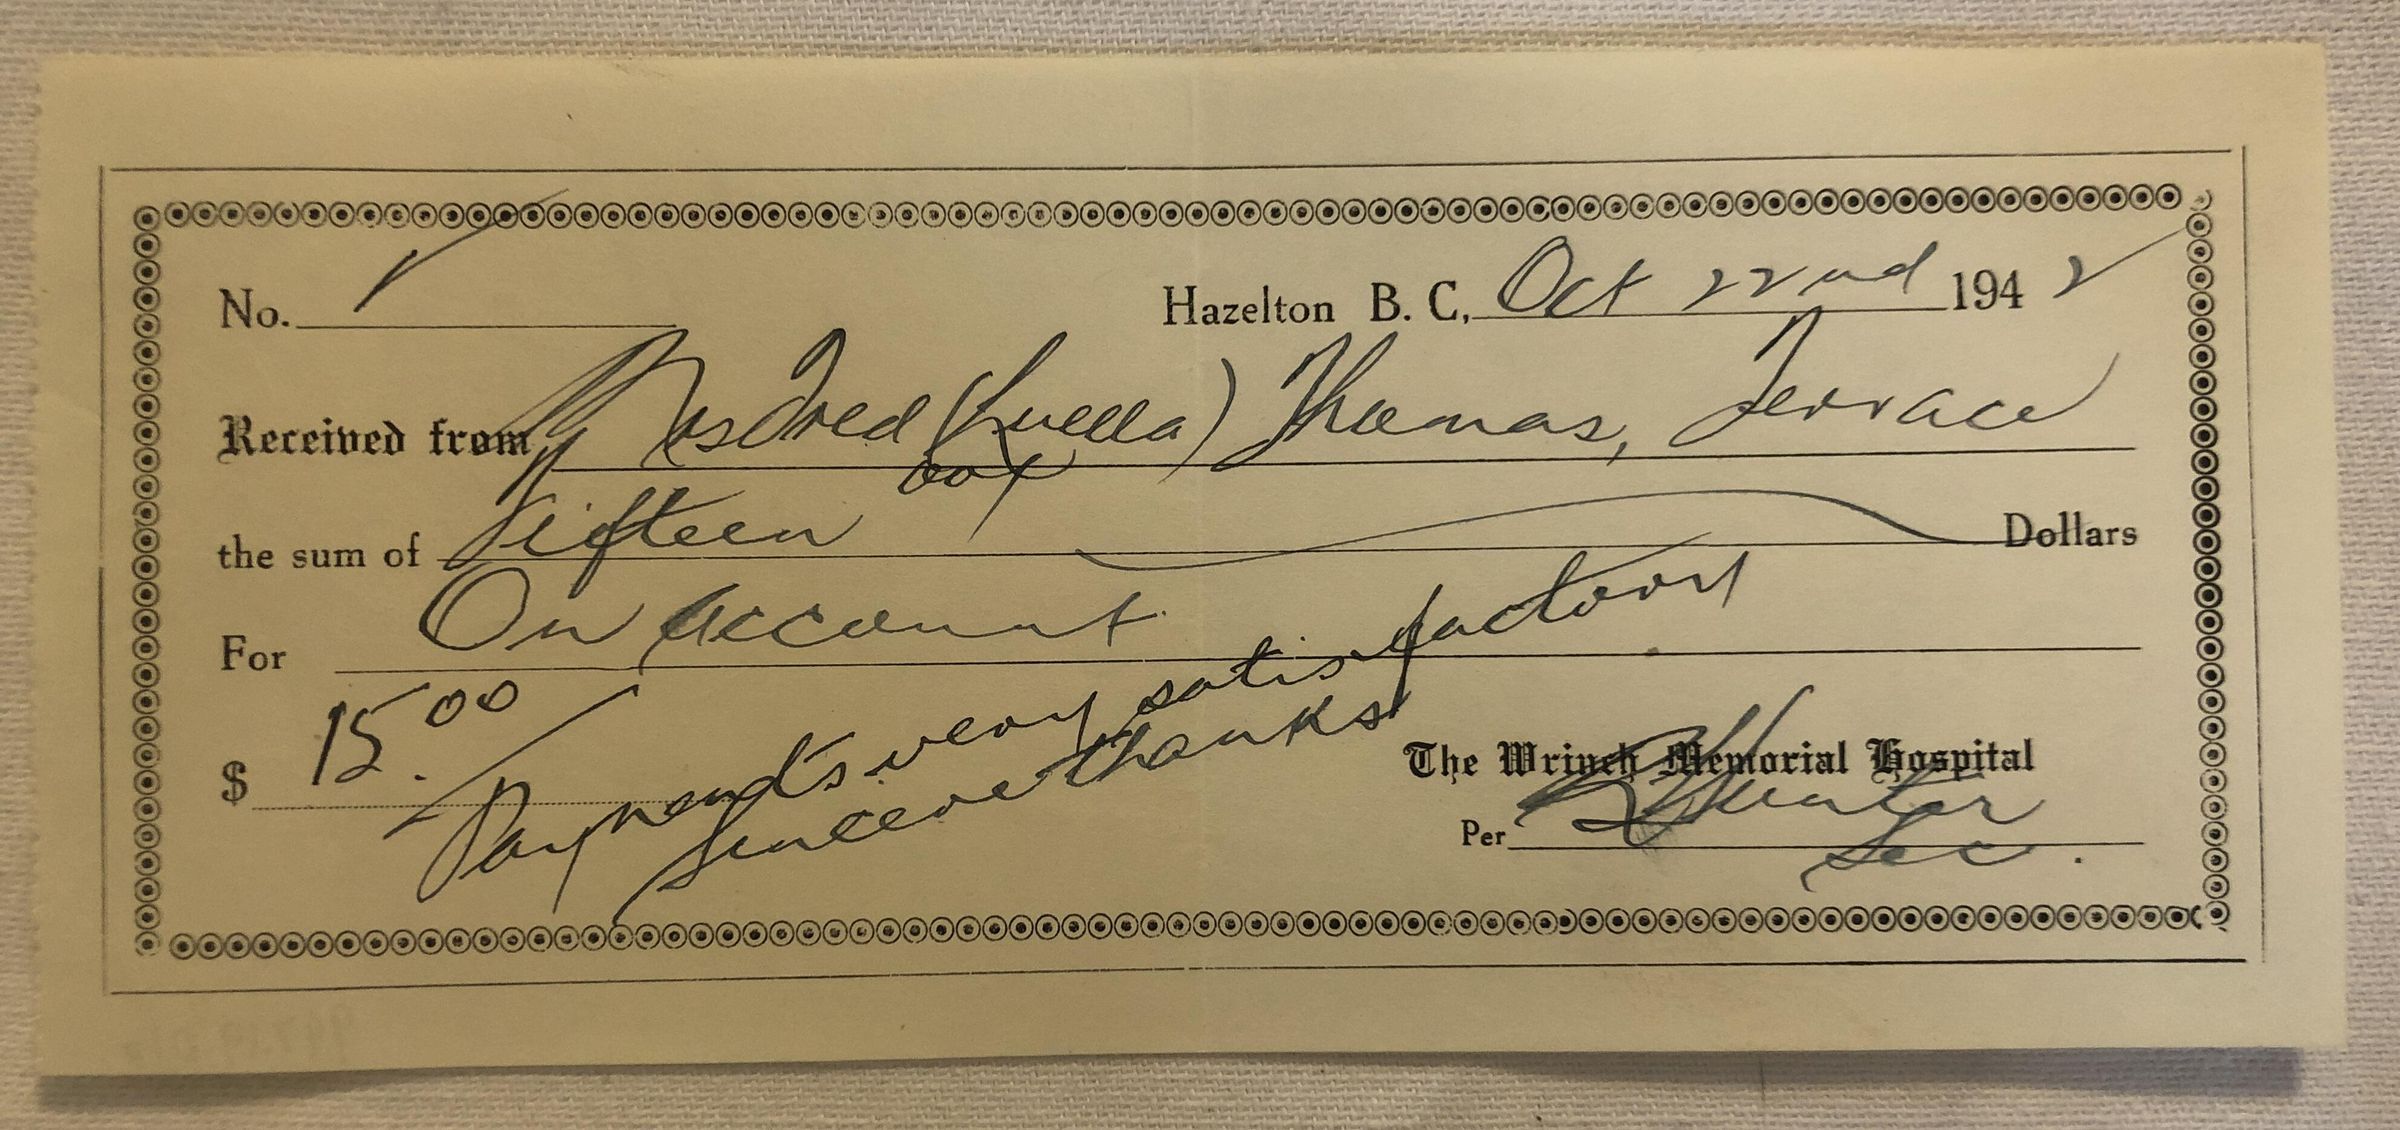 No.
Hazelton B. C., Oct 22nd 1942
Received from Mrs Fred (Luella) Thomas, Terrace
the sum of Fifteen Dollars
For On account
$ 15.00
Payments very satisfactory
Sincere thanks
The Wrinch Memorial Hospital
Per Hunter
Sec.